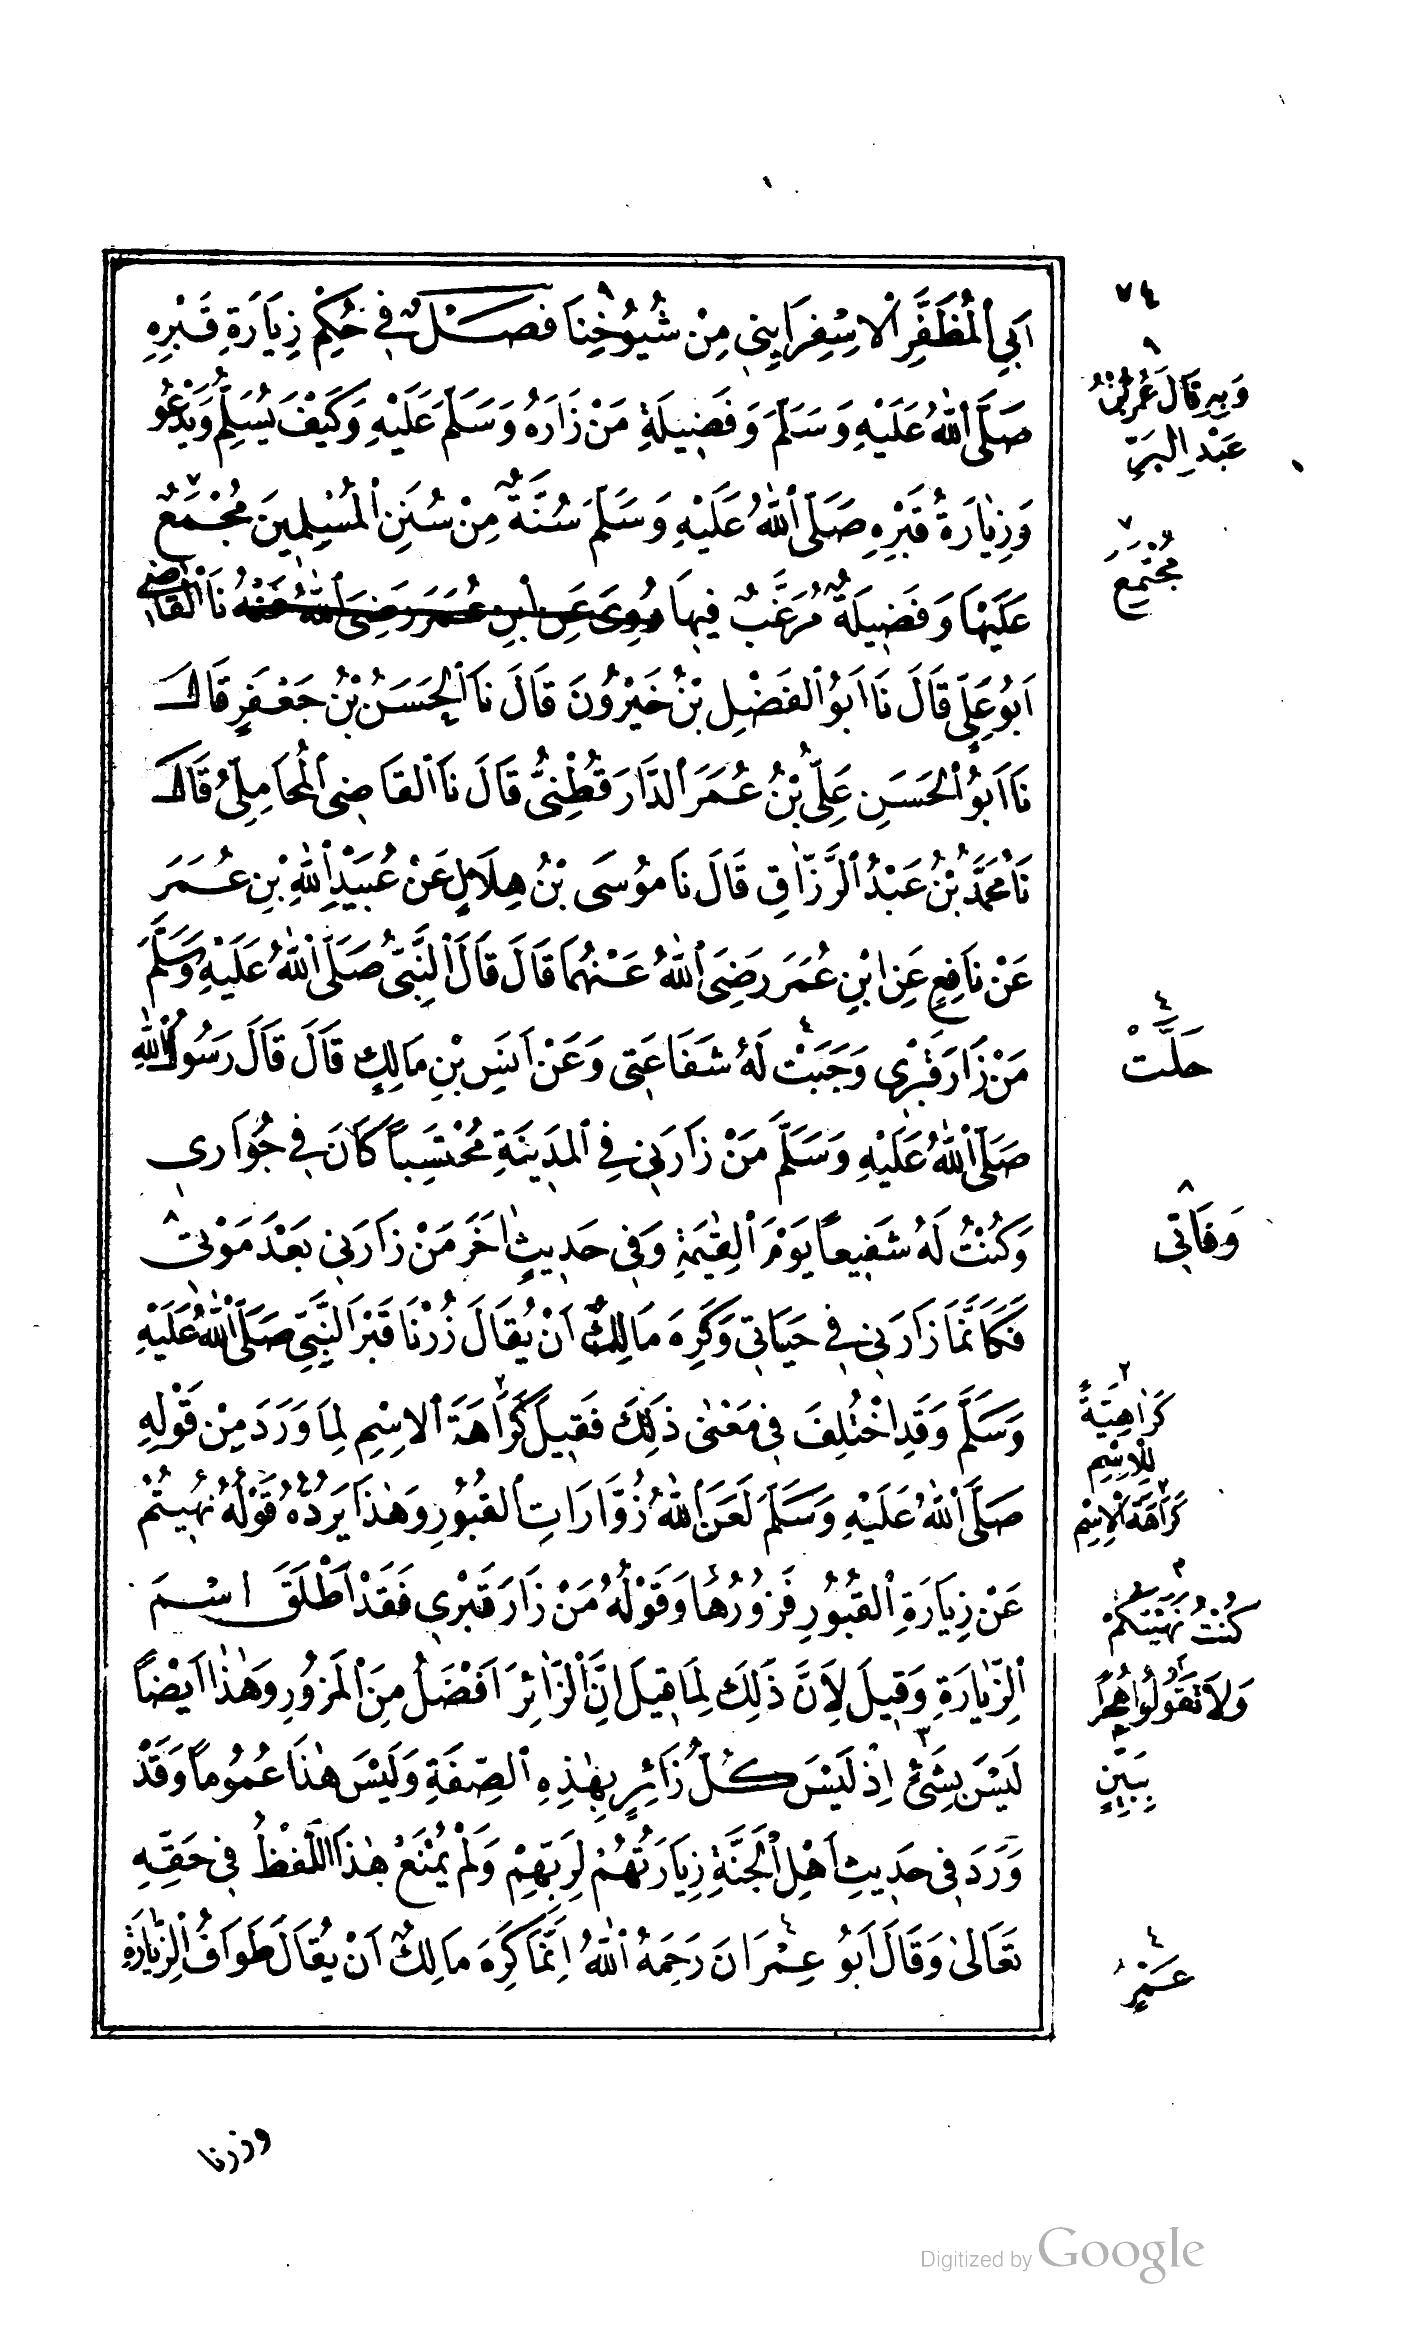 ٧٤
اَبِي الْمُظَفَّرِ الْاِسْفِرَايِنِي مِنْ شُيُوخِنَا ٩ فَصْلٌ فِي حُكْمِ زِيَارَةِ قَبْرِهِ
صَلَّى اللّٰهُ عَلَيْهِ وَسَلَّمَ وَفَضِيلَةِ مَنْ زَارَهُ وَسَلَّمَ عَلَيْهِ وَكَيْفَ يُسَلِّمُ وَيَدْعُو
وَزِيَارَةُ قَبْرِهِ صَلَّى اللّٰهُ عَلَيْهِ وَسَلَّمَ سُنَّةٌ مِنْ سُنَنِ الْمُسْلِمِينَ مُجْمَعٌ ٧
عَلَيْهَا وَفَضِيلَةٌ مُرَغَّبٌ فِيهَا رُوِيَ عَنِ ابْنِ عُمَرَ رَضِيَ اللّٰهُ عَنْهُ نَا الْقَاضِي
اَبُو عَلِيٍّ قَالَ نَا اَبُو الْفَضْلِ بْنُ خَيْرُونَ قَالَ نَا الْحَسَنُ بْنُ جَعْفَرٍ قَالَ
نَا اَبُو الْحَسَنِ عَلِيُّ بْنُ عُمَرَ الدَّارَقُطْنِيُّ قَالَ نَا الْقَاضِي الْمُحَامِلِيُّ قَالَ
نَا مُحَمَّدُ بْنُ عَبْدُ الرَّزَّاقِ قَالَ نَا مُوسَى بْنُ هِلَالٍ عَنْ عُبَيْدِ اللّٰهِ بْنِ عُمَرَ
عَنْ نَافِعٍ عَنِ ابْنِ عُمَرَ رَضِيَ اللّٰهُ عَنْهُمَا قَالَ قَالَ النَّبِيُّ صَلَّى اللّٰهُ عَلَيْهِ وَسَلَّمَ
مَنْ زَارَ قَبْرِي وَجَبَتْ ٤ لَهُ شَفَاعَتِي وَعَنْ اَنَسِ بْنِ مَالِكٍ قَالَ قَالَ رَسُولُ اللّٰهِ
صَلَّى اللّٰهُ عَلَيْهِ وَسَلَّمَ مَنْ زَارَنِي فِي الْمَدِينَةِ مُحْتَسِبًا كَانَ فِي جِوَارِي
وَكُنْتُ لَهُ شَفِيعًا يَوْمَ الْقِيٰمَةِ وَفِي حَدِيثٍ اٰخَرَ مَنْ زَارَنِي بَعْدَ مَوْتِي ٨
فَكَاَنَّمَا زَارَنِي فِي حَيَاتِي وَكَرِهَ مَالِكٌ اَنْ يُقَالَ زُرْنَا قَبْرَ النَّبِيِّ صَلَّى اللّٰهُ عَلَيْهِ
وَسَلَّمَ وَقَدِ اخْتُلِفَ فِي مَعْنٰى ذٰلِكَ فَقِيلَ كَرَاهَةَ ٢ الْاِسْمِ لِمَا وَرَدَ مِنْ قَوْلِهِ
صَلَّى اللّٰهُ عَلَيْهِ وَسَلَّمَ لَعَنَ اللّٰهُ زُوَّارَاتِ الْقُبُورِ وَهٰذَا يَرُدُّهُ قَوْلُهُ نُهِيتُمْ
عَنْ زِيَارَةِ الْقُبُورِ فَزُورُهَا وَقَوْلُهُ مَنْ زَارَ قَبْرِي فَقَدْ اَطْلَقَ اسْمَ
الزِّيَارَةِ وَقِيلَ لِاَنَّ ذَلِكَ لِمَا قِيلَ اِنَّ الزَّائِرَ اَفْضَلُ مِنَ الْمَزُورِ وَهٰذَا اَيْضًا
لَيْسَ بِشَيْءٍ ٣ اِذْ لَيْسَ كُلُّ زَائِرٍ بِهٰذِهِ الصِّفَةِ وَلَيْسَ هٰذَا عُمُومًا وَقَدْ
وَرَدَ فِي حَدِيثِ اَهْلِ الْجَنَّةِ زِيَارَتُهُمْ لِرَبِّهِمْ وَلَمْ يُمْنَعْ هٰذَا اللَّفْظُ فِي حَقِّهِ
تَعَالٰى وَقَالَ اَبُو عِمْرَانَ ٤ رَحِمَهُ اللّٰهُ اِنَّمَا كَرِهَ مَالِكٌ اَنْ يُقَالَ طَوَافُ الزِّيَارَةِ
٩
وَبِهِ قَالَ عُمَرُ بْنُ
عَبْدِ الْبَرِّ
٧
مُجْتَمِعٌ
٤
حَلَّتْ
٨
وَفَاتِي
٢
كَرَاهِيَةً
لِلْاِسْمِ
كَرَاهَةَ الْاِسْمِ
كُنْتُ نَهَيْتُكُمْ
وَلَا تَقُولُوا هُجْرًا
٣
بِبَيِّنٍ
٤
عَمْرٍ
وزرنا
Digitized by Google